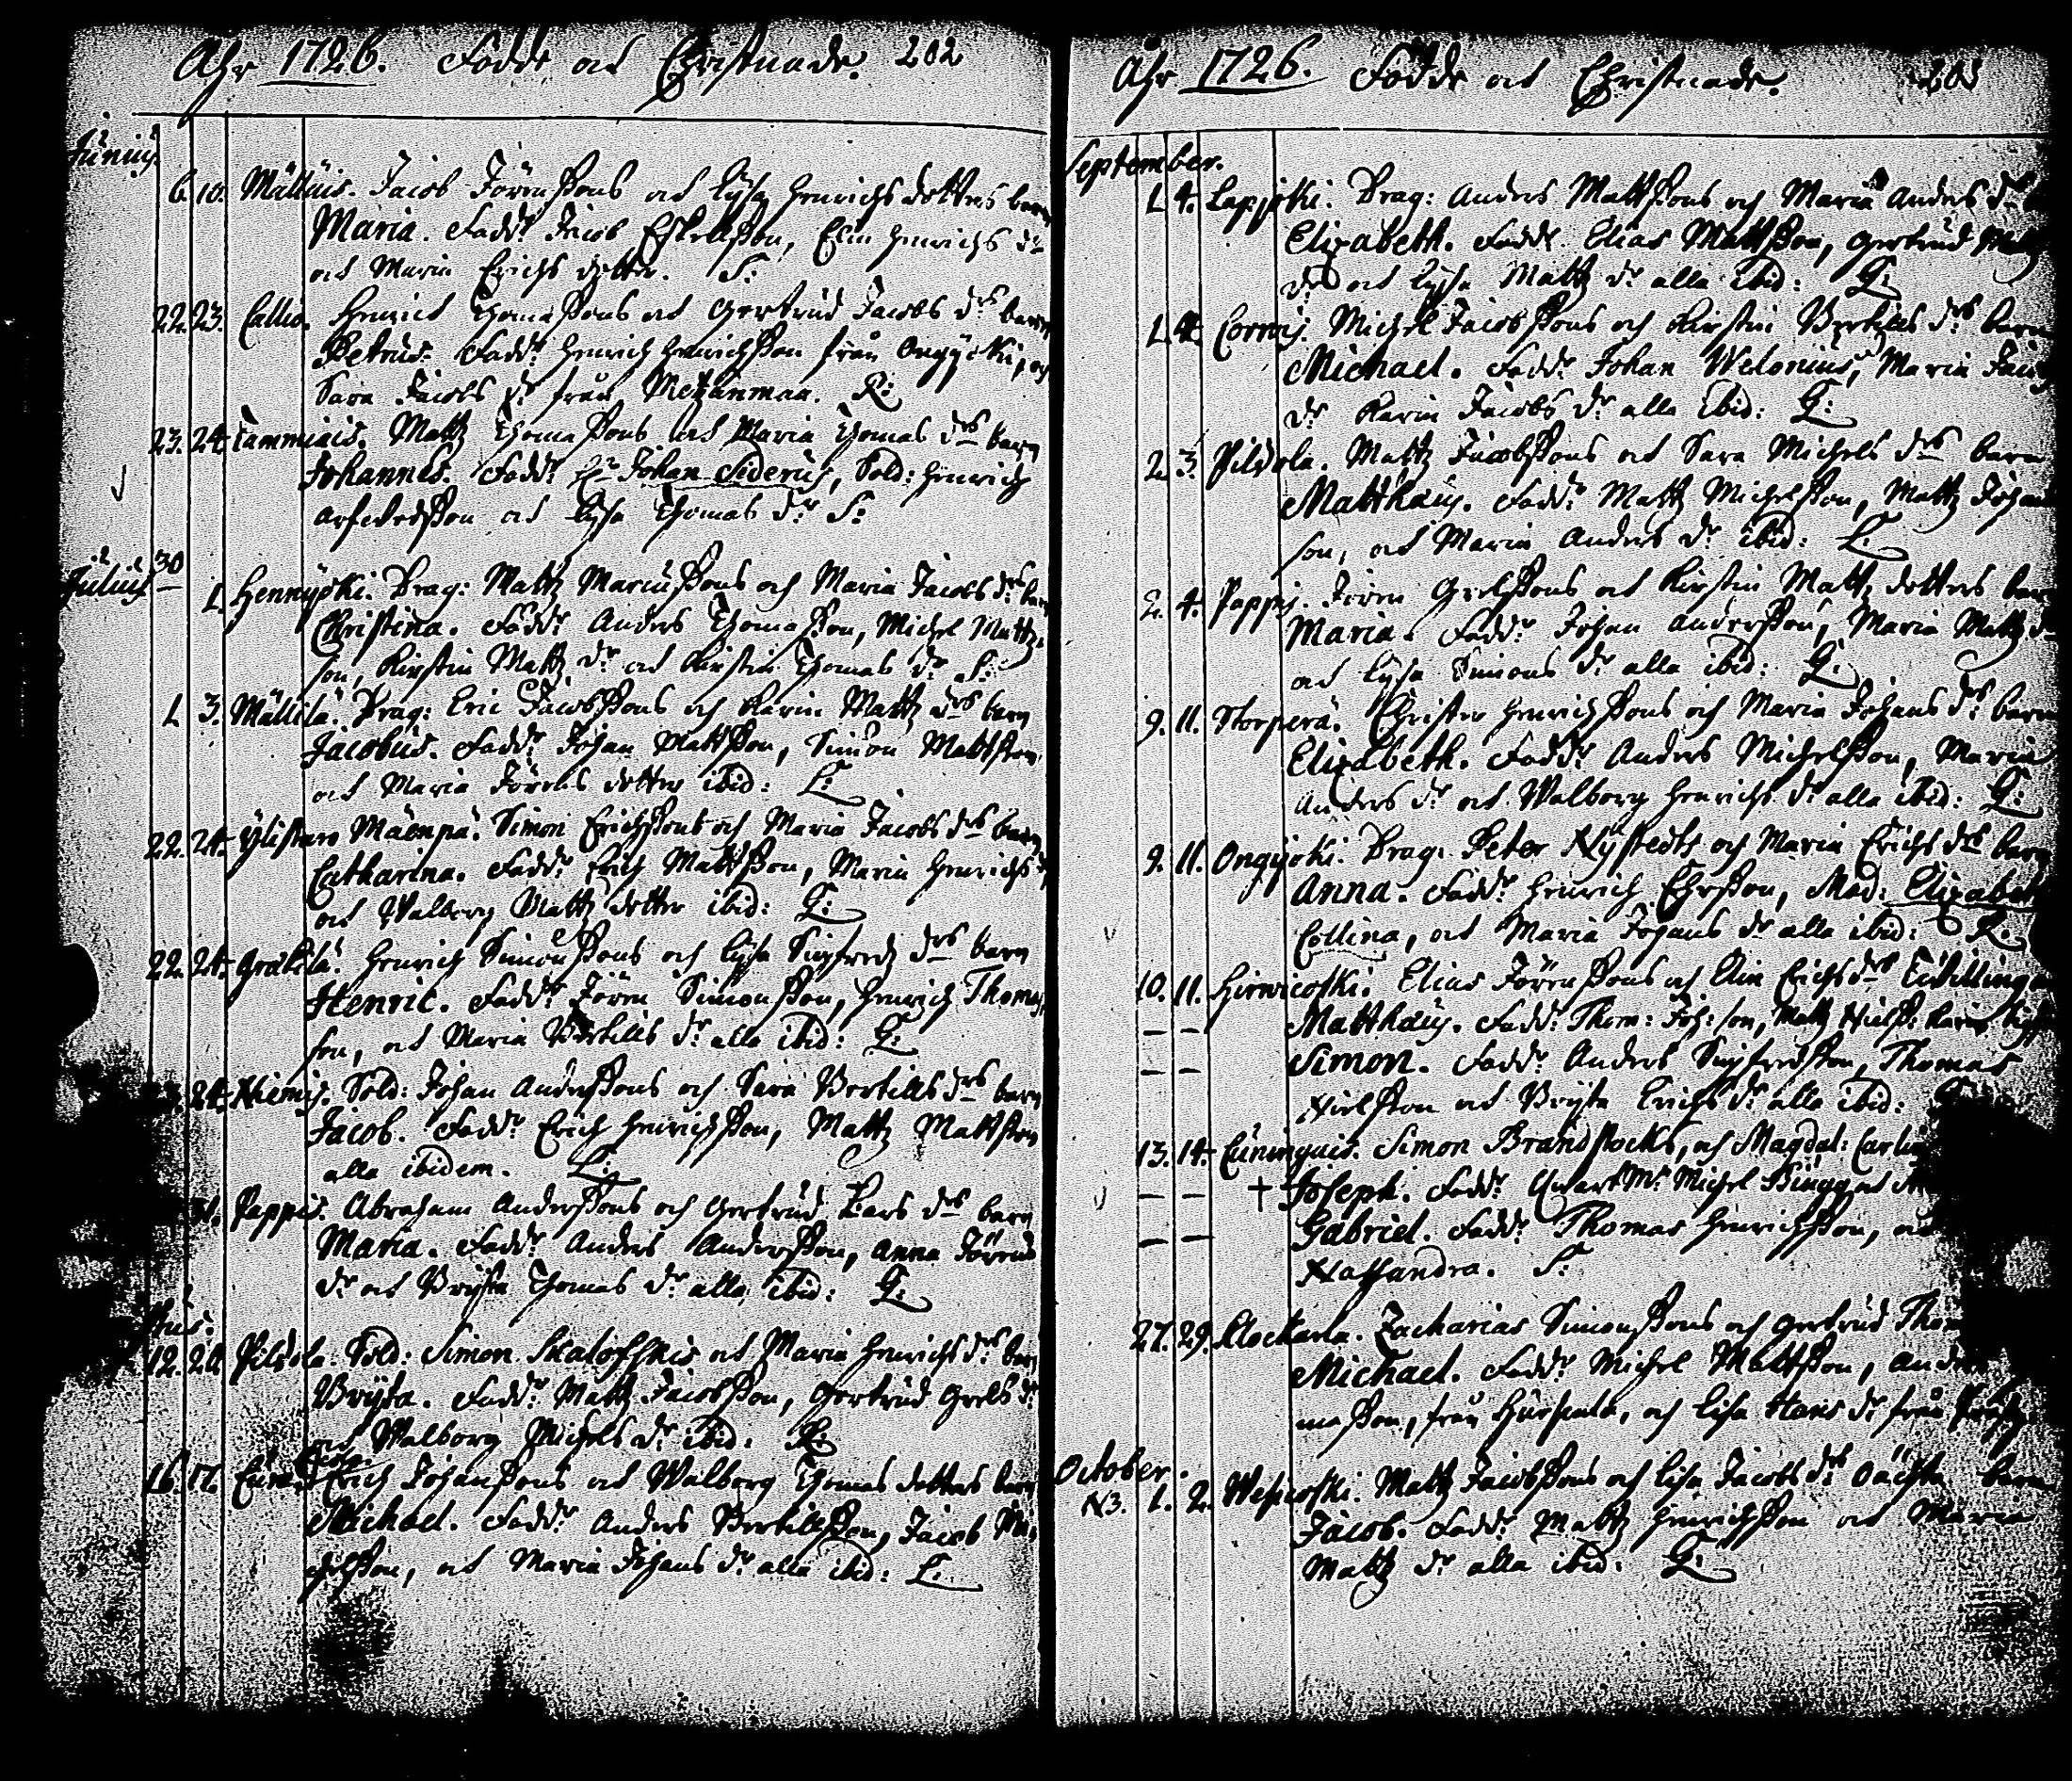 Åhr 1726. Födde och Christnade. 202
Junius
6. 10. Mällais. Jacob Jörensons och Lysa Henrichs dotters barn
Maria. Fadd: Jacob Eskelsson, Elin Henrichs dr
och Maria Erichs dotter. S:
22. 23. Callio. Henric Thomassons och Gertrud Jacobs drs barn
Petrus. Fadd: Henrich Henrichsson från Ongjocki, och
Sara Jacobs dr från Metzänmaa. R:
23. 24. Tammiais. Mattz Thomassons och Maria Thomas drs barn
Johannes. Fadd: Hr Johan Siderus, Sold: Henrich
Arfwedsson och Lysa Thomas dr S:
Julius 30
1. Hennyocki. Drag: Mattz Mariussons och Maria Jacobs drs barn
Christina. Fadd: Anders Thomasson, Michel Mattz-
son, Kirstin Mattz dr och Kirstin Thomas dr S:
1. 3. Mällilä. Drag: Eric Jacobssons och Karin Mattz drs barn
Jacobus. Fadd: Johan Mattsson, Simon Mattsson
och Maria Jörens dotter ibid: L:
22. 24. Ylistaro Mäenpä. Simon Erichssons och Maria Jacobs drs barn
Catharina. Fadd: Erich Mattsson, Maria Henrichs dr
och Walborg Mattz dotter ibid: G:
22. 24. Gräkilä. Henrich Simonssons och Lysa Sigfredz drs barn
Henric. Fadd: Jören Simonsson, Henrich Thomas-
son, och Maria Bertills dr alla ibid: G:
24. Niemis. Sold: Johan Anderssons och Sara Bertills drs barn
Jacob. Fadd: Erich Henrichsson, Mattz Mattsson
alla ibidem. L:
31. Pappis. Abraham Anderssons och Gertrud Lars drs barn
Maria. Fadd: Anders Andersson, Anna Jörens
dr och Bryta Thomas dr alla ibid: G:
12. 20. Pilvola. Sold: Simon Skalofskis och Maria Henrichs drs barn
Bryta. Fadd: Mattz Jacobsson, Gertrud Grels dr
och Walborg Michels dr ibid: R:
16. 17. Erich Johanssons och Walborg Thomas dotters barn
Michael. Fadd: Anders Bertillsson, Jacob Mi-
chelsson, och Maria Johans dr alla ibid: L:
Åhr 1726. Födde och Christnade. 203
September.
1. 4. Lapjocki. Drag: Anders Mattssons och Maria Anders drs
Elizabeth. Fadd: Elias Mattsson, Gertrud Mattz
dr och Lysa Mattz dr alla ibid: G:
1. 4. Cornis. Michel Jacobssons och Kirstin Bertills drs barn
Michael. Fadd: Johan Welonius, Maria Jacobs
dr Karin Jacobs dr alla ibid: G:
2. 3. Pilvola. Mattz Jacobssons och Sara Michels drs barn
Matthæus. Fadd: Mattz Michelsson, Mattz Johans
son, och Maria Anders dr ibid: L:
2. 4. Pappis. Jören Grelssons och Kirstin Mattz dotters barn
Maria. Fadd: Johan Andersson, Maria Mattz dr
och Lysa Simons dr alla ibid: G:
9. 11. Storperä. Christer Henrichssons och Maria Johans drs barn
Elizabeth. Fadd: Anders Michelsson, Maria
Anders dr och Walborg Henrichs dr alla ibid: G:
9. 11. Ongjoki. Drag: Peter Nystedts och Maria Erichs drs barn
Anna. Fadd: Henrich Ehrsson, Mad: Elizabeth
Collina, och Maria Johans dr alla ibid: R:
10. 11. Hirwicoski. Elias Jörenssons och Elin Erichs drs Tvillingar
— — Matthæus. Fadd: Thom: Joh:son, Mattz Nilss: Karin
— — Simon. Fadd: Anders Sigfredsson, Thomas
Nielsson och Bryta Erichs dr alla ibid:
13. 14. Cuninguis. Simon Brandstocks, och Magdal:
— — + Joseph. Fadd: QuartMr Michel Bingg och
— — Gabriel. Fadd: Thomas Henrichsson, och
Nassandra. S:
27. 29. Klockarla. Zacharias Simonssons och Gertrud Thom
Michael. Fadd: Michel Mattsson, Anders
masson, från Hurpala, och Lisa Hans dr från
October.
N3. 1. 2. Wesicoski. Mattz Jacobssons och Lisa Jacobs drs oächta barn
Jacob. Fadd: Mattz Henrichsson och Maria
Mattz dr alla ibid: G: